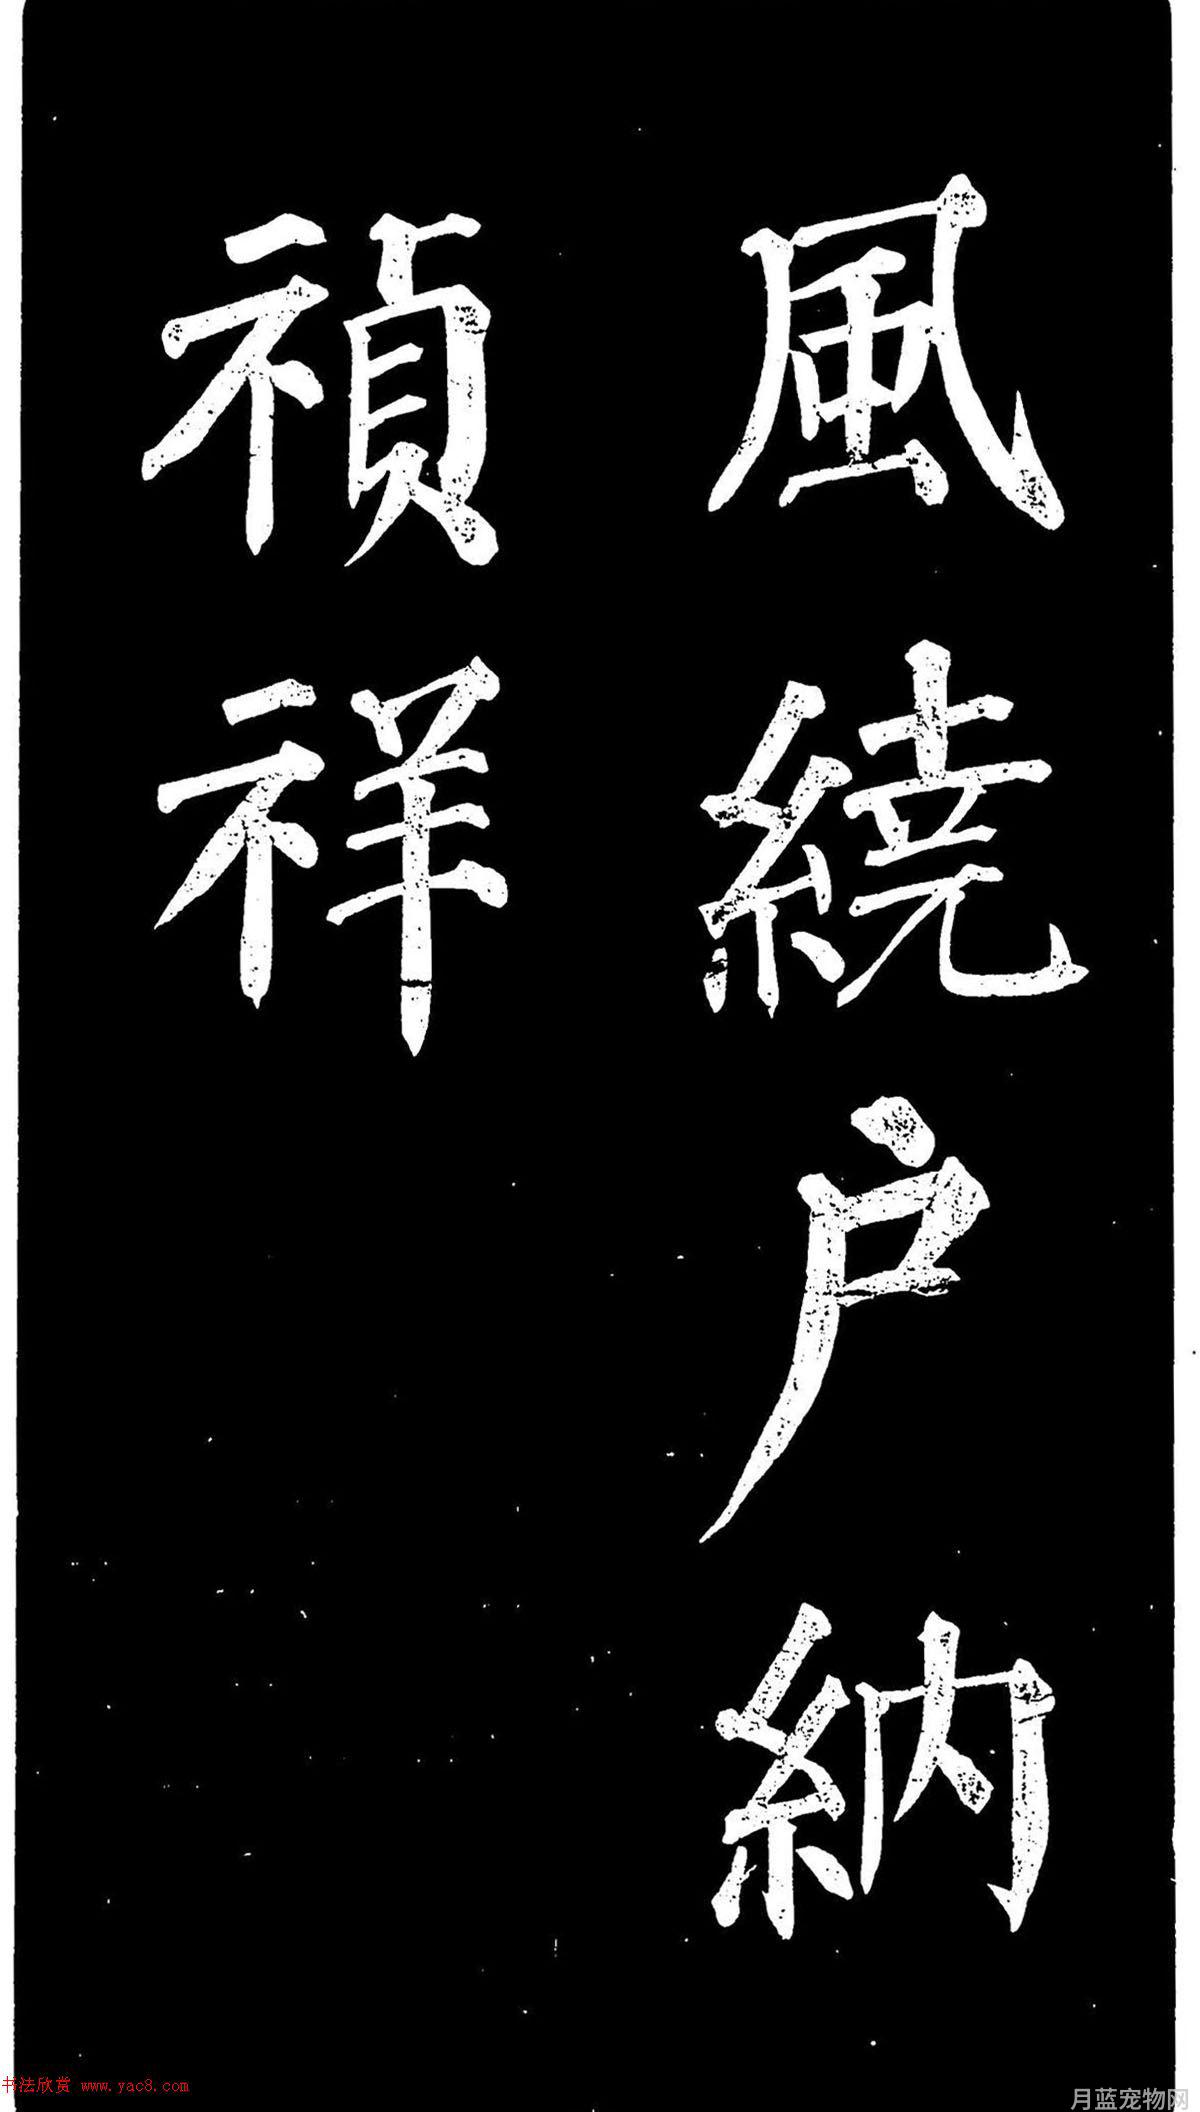 風繞户納
禎祥
书法欣赏 www.yac8.com
月蓝宠物网